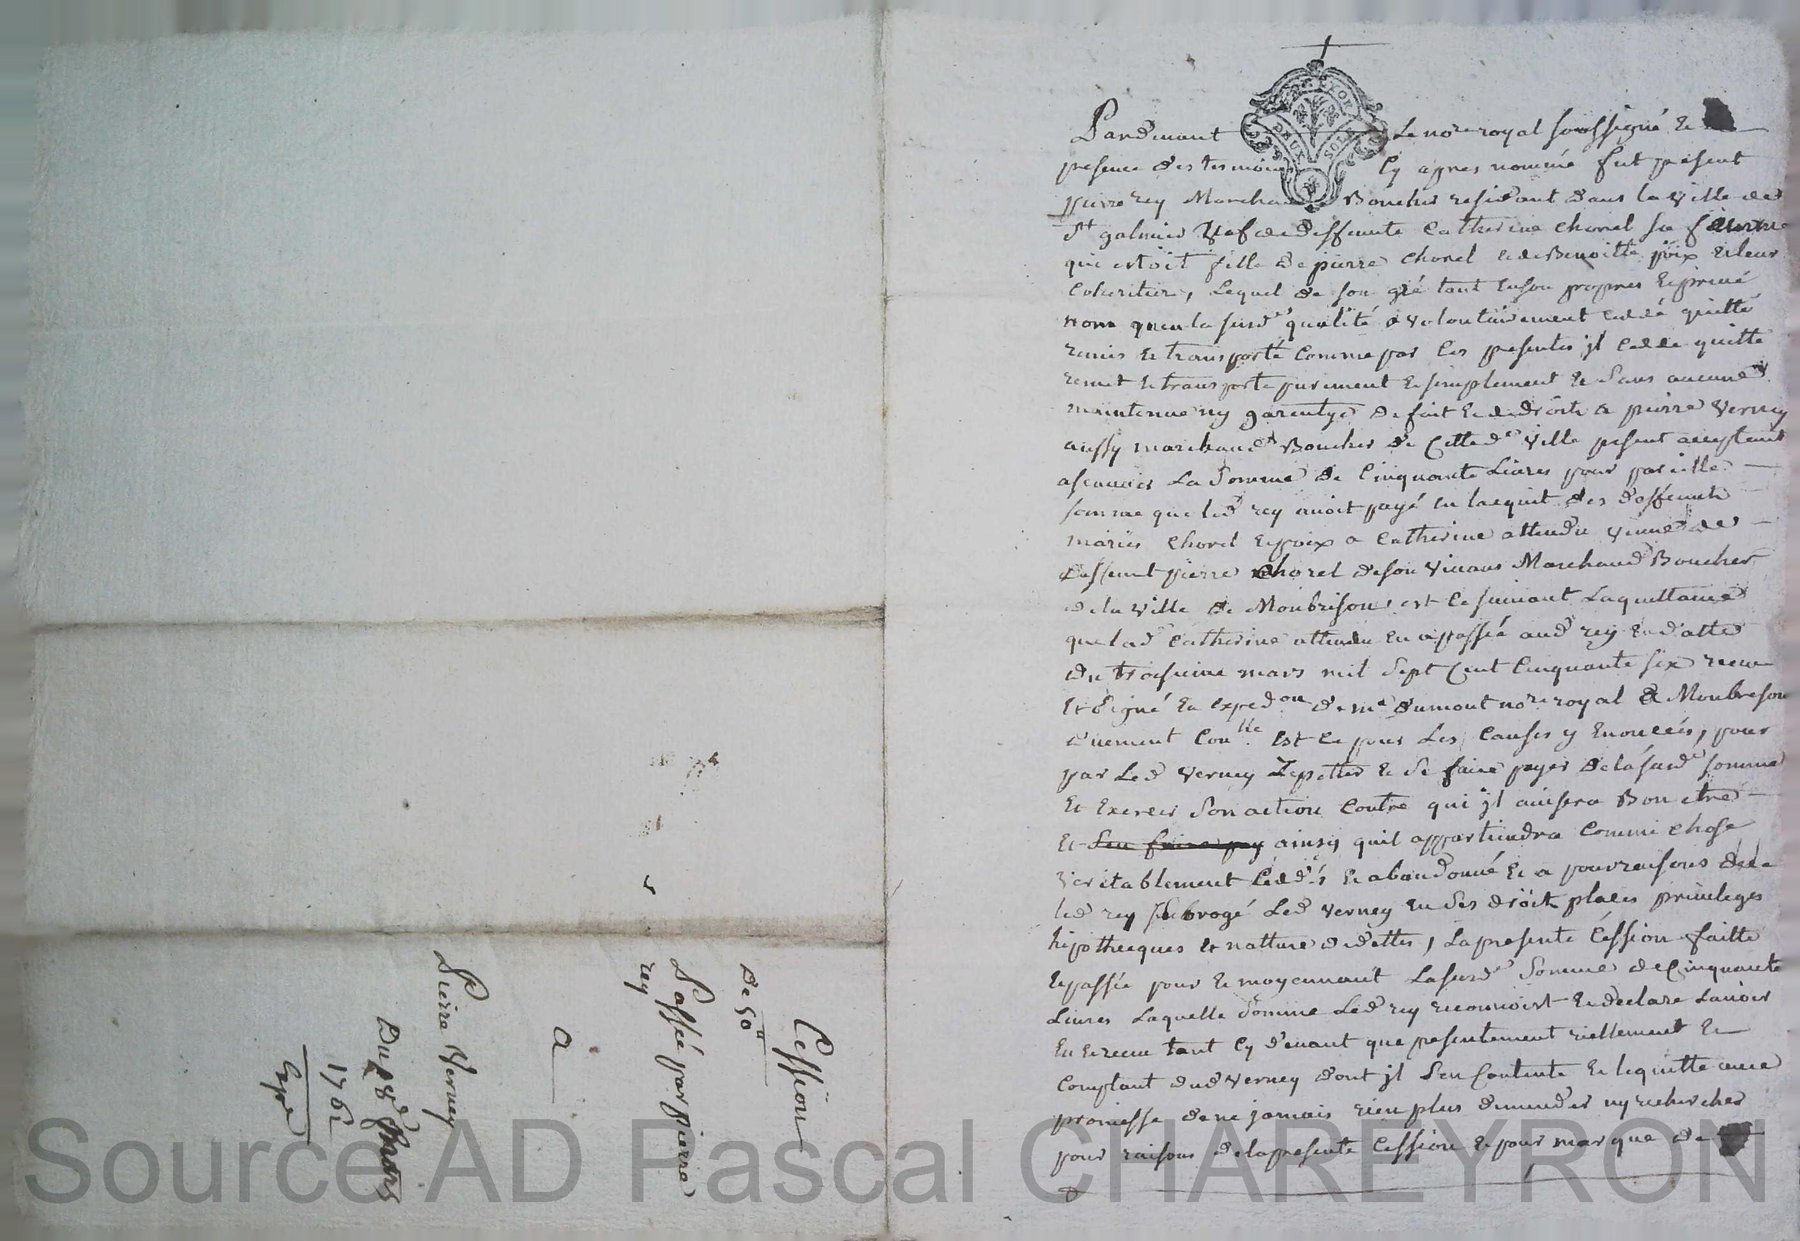 Cession
De 50ll
Passée par pierre
rey
a
Pierre Verney
Du 8e Mars
1762
Expé
DEUX SOLS
Pardevant Le nore royal soussigné Et
presence des tesmoins Cy apres nommé fut present
pierre rey Marchand Boucher residant dans la ville de
St galmier Vef de deffunte Catherine chorel sa femme
qui estoit fille de pierre chorel et de Benoitte poix Et leur
Coheritier, Lequel de son gré tant En son propre Et privé
nom quen la susde qualité a volontairement ceddé quitté
remis Et transporté Comme par Ces presentes jl Cedde quitte
remet Et transporte purement Et simplement Et Sans aucune
maintenue ny garentye de fait Et de droite a pierre Verney
aussy marchand Boucher de Cette de ville present acceptant
ascavoir La Somme de Cinquante Livres pour pareille
somme que led rey avoit payé en lacquit des deffunts
mariés Chorel Et poix a Catherine attendu veuve de
deffunt pierre Chorel de son vivant Marchand Boucher
de la ville de Monbrison, est Ce suivant La quittance
que lad Catherine attendu En a passée aud rey En datte
du troisieme mars mil Sept Cent Cinquante six receu
Et Signé En expedon de me dumont nore royal a Monbrison
duement Conllé Est Ce pour Les Causes y Enoncées, pour
par Led Verney repetter Et Se faire payer de la susde somme
Et Exercer Son action Contre qui jl avisera Bon etre
Et Sen faire pay ainsy quil appartiendra Comme chose
veritablement Ceddés Et abandonné Et a pour raisons de
led rey subrogé Led Verney En Ses droit places privileges
hipotheques Et nature de dettes, La presente Cession faitte
Et passée pour Et moyennant La susde Somme de Cinquante
Livres Laquelle Somme Led rey reconnoist Et declare Lavoir
Eu Et receu tant Cy devant que presentement réellement Et
Comptant dud Verney dont jl Sen Contente Et le quitte avec
promesse de ne jamais rien plus demander ny rechercher
pour raisons de la presente Cession Et pour marque de
Source AD Pascal CHAREYRON